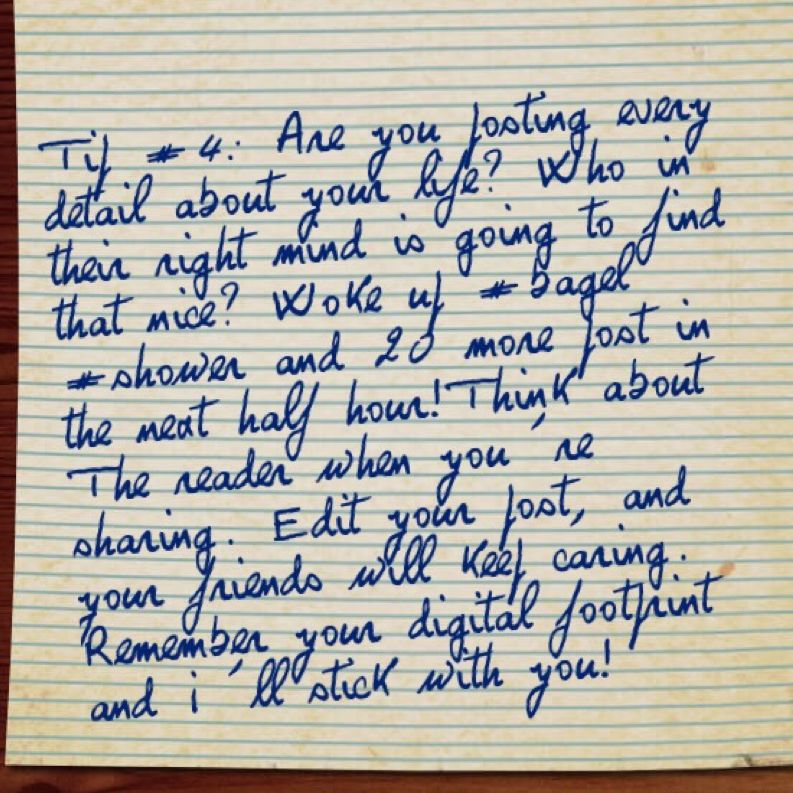 Tip #4: Are you posting every
detail about your life? Who in
their right mind is going to find
that nice? Woke up #bagel
#shower and 20 more post in
the next half hour! Think about
The reader when you´re
sharing. Edit your post, and
your friends will keep caring.
Remember your digital footprint
and i´ll stick with you!